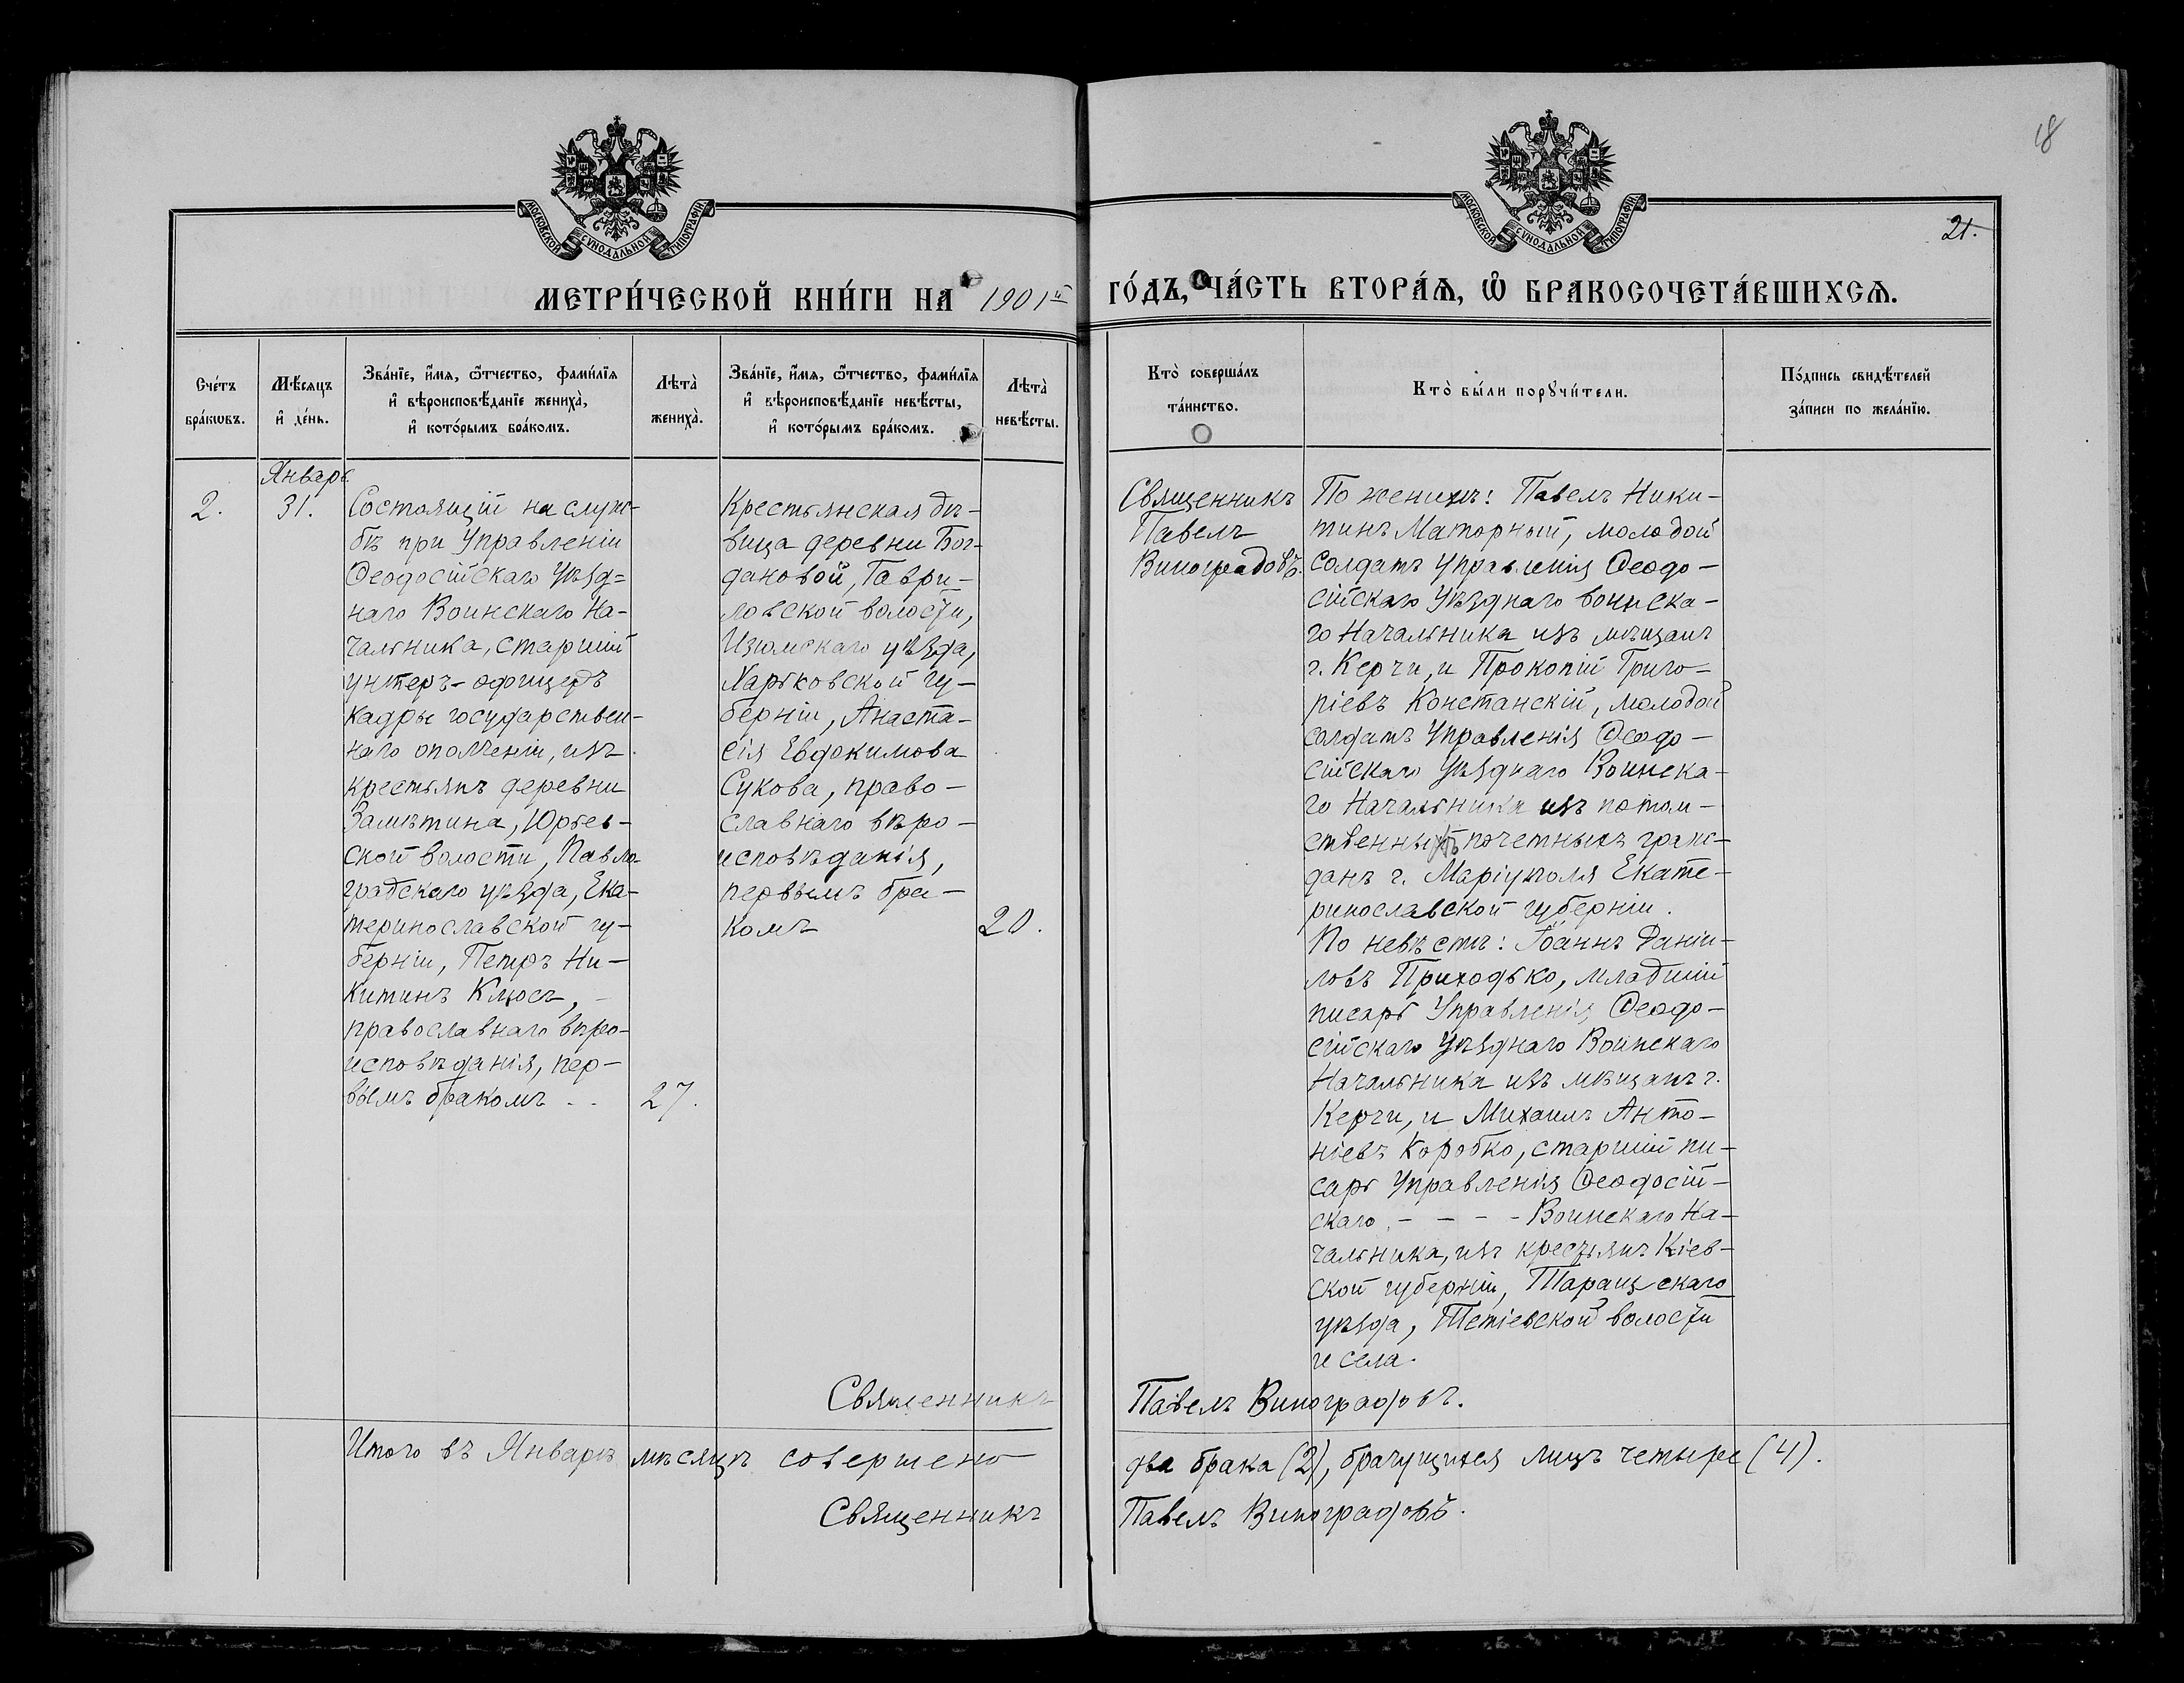 18
21.
МОСКОВСКОЙ СѴНОДАЛЬНОЙ ТИПОГРАФІИ
МОСКОВСКОЙ СѴНОДАЛЬНОЙ ТИПОГРАФІИ
МЕТРИ́ЧЕСКОЙ КНИ́ГИ НА 1901й ГО́ДЪ, ЧА́СТЬ ВТОРА́Ѧ, Ѡ҆ БРАКОСОЧЕТА́ВШИХСѦ.
Сче́тъ бра́кѡвъ.
Мѣ́сѧцъ и҆ де́нь.
Зва́нїе, и҆́мѧ, ѻ҆́тчество, фами́лїѧ
и҆ вѣроисповѣ́данїе жениха̀,
и҆ кото́рымъ бра́комъ.
Лѣта̀ жениха̀.
Зва́нїе, и҆́мѧ, ѻ҆́тчество, фами́лїѧ
и҆ вѣроисповѣ́данїе невѣ́сты,
и҆ кото́рымъ бра́комъ.
Лѣта̀ невѣ́сты.
Кто̀ соверша́лъ
та́инство.
Кто̀ бы́ли порꙋчи́тели.
По́дпись свидѣ́телей
за́писи по жела́нїю.
2.
Январь
31.
Состоящій на служ-
бѣ при Управленіи
Ѳеодосійскаго Уѣзд=
наго Воинскаго На-
чальника, старшій
унтеръ-офицеръ
кадры государствен-
наго ополченія, изъ
крестьянъ деревни
Замѣтина, Юрьев-
ской волости, Павло-
градскаго уѣзда, Ека-
теринославской гу-
берніи, Петръ Ни-
китинъ Клюсъ, -
православнаго вѣро-
исповѣданія, пер-
вымъ бракомъ - -
27.
Крестьянская дѣ-
вица деревни Бог-
дановой, Гаври-
ловской волости,
Изюмскаго уѣзда,
Харьковской гу-
берніи, Анаста-
сія Евдокимова
Сукова, право-
славнаго вѣро-
исповѣданія,
первымъ бра-
комъ
20.
Священникъ
Павелъ
Виноградовъ.
По женихѣ: Павелъ Ники-
тинъ Маторный, молодой
солдатъ Управленія Ѳеодо-
сійскаго Уѣзднаго воинска-
го Начальника изъ мѣщанъ
г. Керчи, и Прокопій Григо-
ріевъ Констанскій, молодой
солдатъ Управленія Ѳеодо-
сійскаго Уѣзднаго Воинска-
го Начальника изъ потом-
ственныхъ почетныхъ граж-
данъ г. Маріуполя Екате-
ринославской губерніи.
По невѣстѣ: Іоаннъ Даніи-
ловъ Приходько, младшій
писарь Управленія Ѳеодо-
сійскаго Уѣзднаго Воинскаго
Начальника изъ мѣщанъ г.
Керчи, и Михаилъ Анто-
ніевъ Коробко, старшій пи-
сарь Управленія Ѳеодосій-
скаго - - - - Воинскаго На-
чальника, изъ крестьянъ Кіев-
ской губерніи, Таращскаго
уѣзда, Тетіевской волости
и села.
Священникъ Павелъ Виноградовъ.
Итого въ Январѣ мѣсяцѣ совершено два брака (2), брачущихся лицъ четыре (4).
Священникъ Павелъ Виноградовъ.